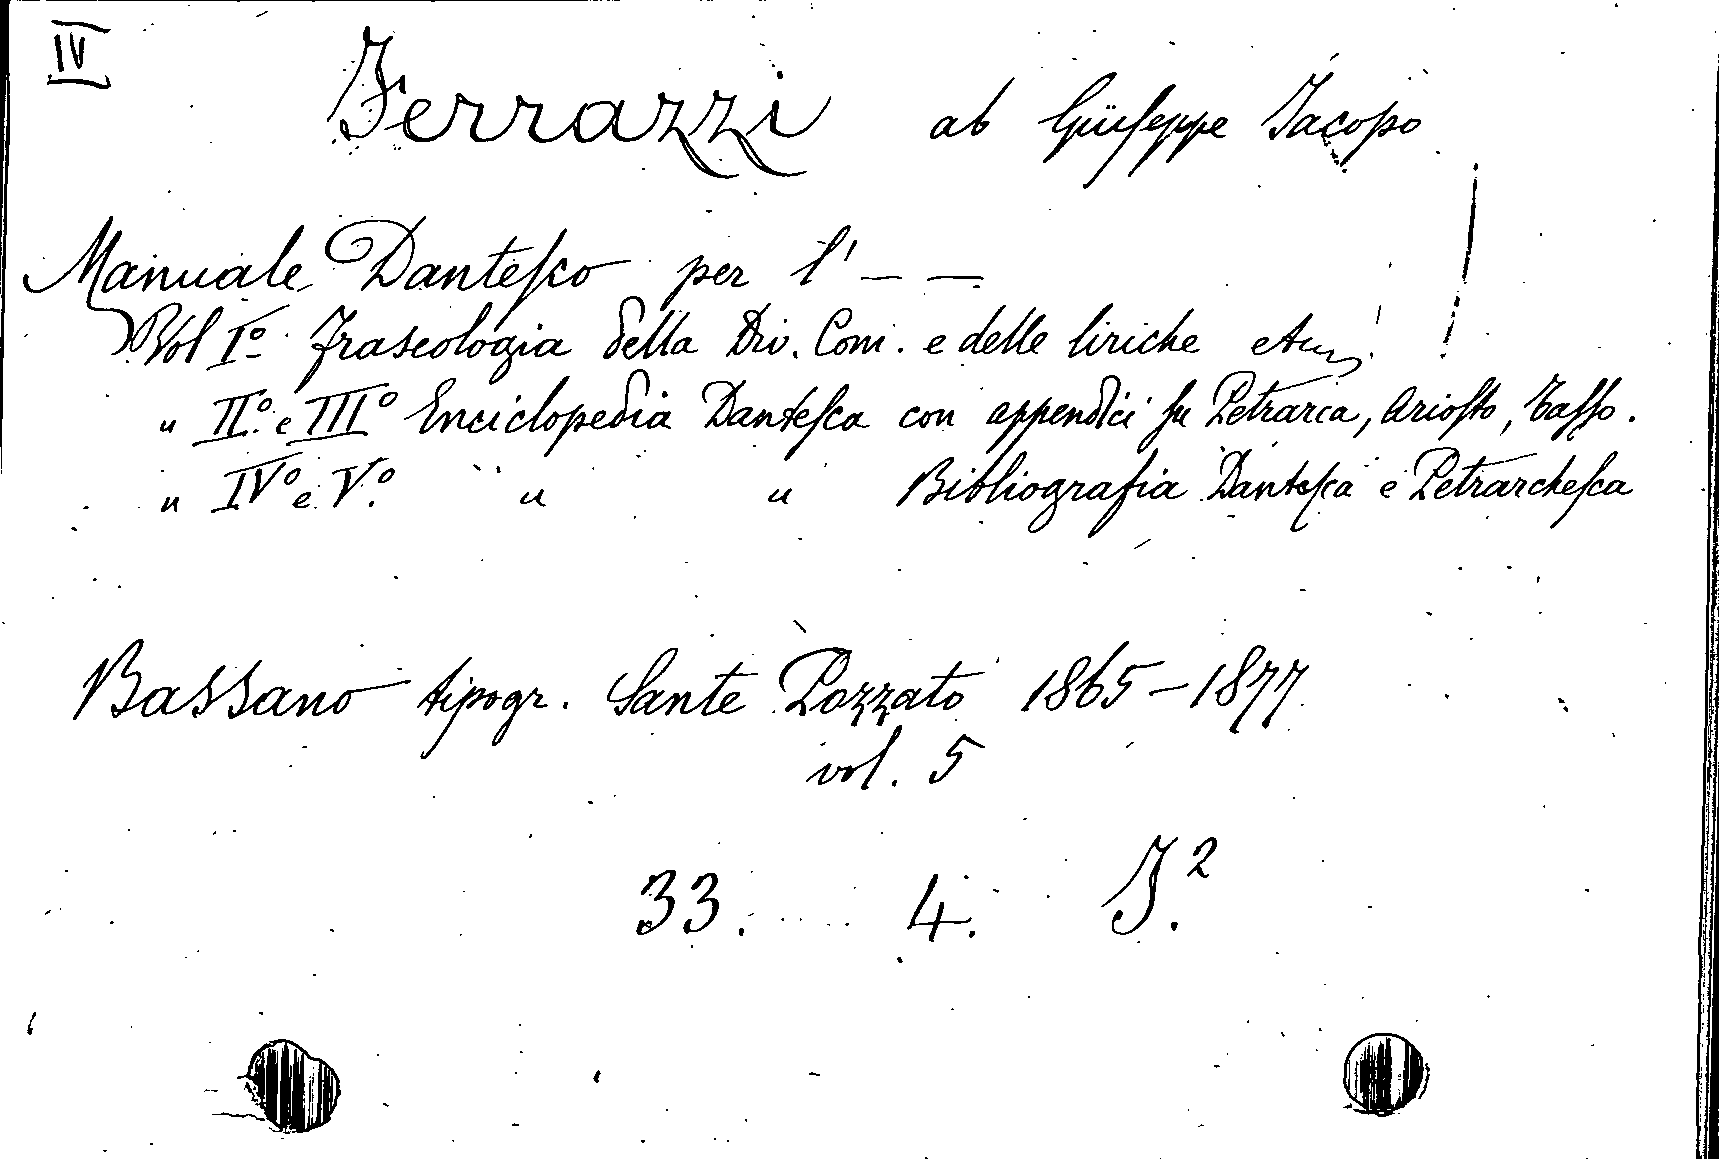 IV
Ferrazzi ab Giuseppe Jacopo
Manuale Dantesco per l' — —
Vol I.º Fraseologia della Div. Com. e delle liriche
" II.º e IIIº Enciclopedia Dantesca con appendici su Petrarca, Ariosto, Tasso.
" IVº e V.º " " Bibliografia Dantesca e Petrarchesca
Bassano tipogr. Sante Pozzato 1865-1877
vol. 5
33. 4. J.²